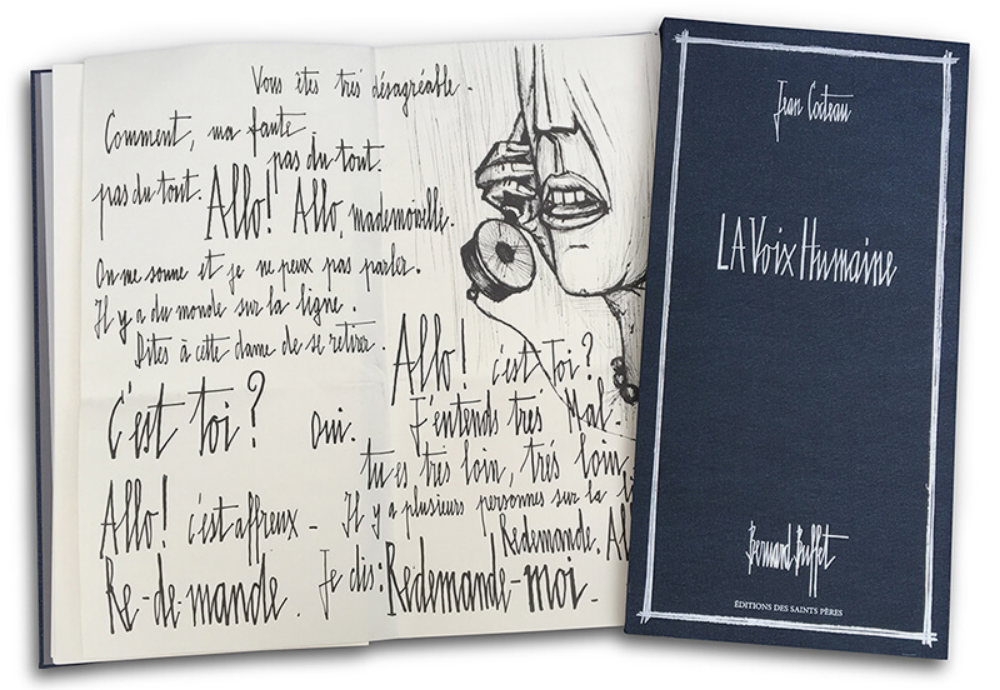 Vous êtes très désagréable.
Comment, ma faute.
pas du tout.
pas du tout. Allo! Allo, mademoiselle.
On me sonne et je ne peux pas parler.
Il y a du monde sur la ligne.
Dites à cette dame de se retirer.
Allo! c'est toi?
C'est toi? oui. J'entends très Mal.
tu es très loin, très loin.
Allo! c'est affreux - Il y a plusieurs personnes sur la li
Redemande. Al
Re-de-mande. Je dis: Redemande-moi-
Jean Cocteau
LA Voix Humaine
Bernard Buffet
ÉDITIONS DES SAINTS PÈRES